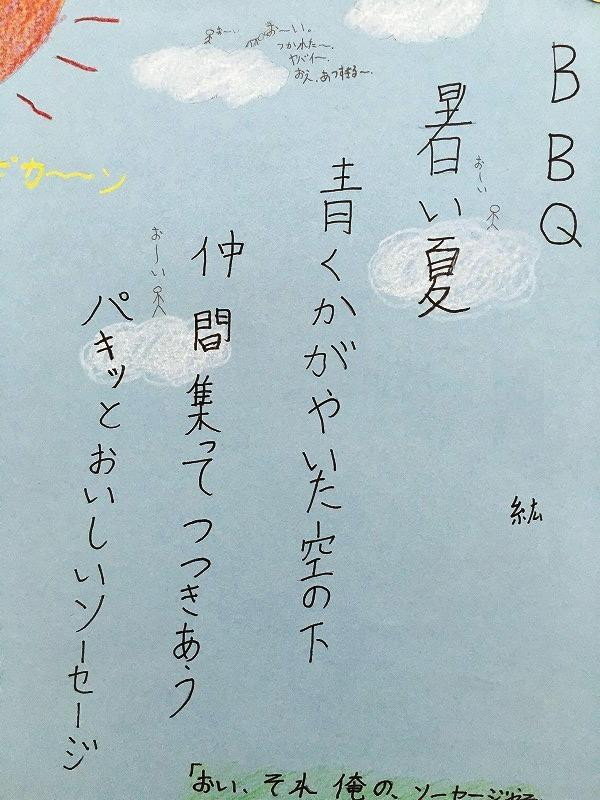 BBQ
紘
暑い夏
青くかがやいた空の下
仲間集ってつつきあう
パキッとおいしいソーセージ
おーい
おーい
おーい
おーい。
つかれた〜。
ヤバイ〜。
あつすぎる〜。
ピカ〜〜ン
「おい、それ俺の、ソーセージ